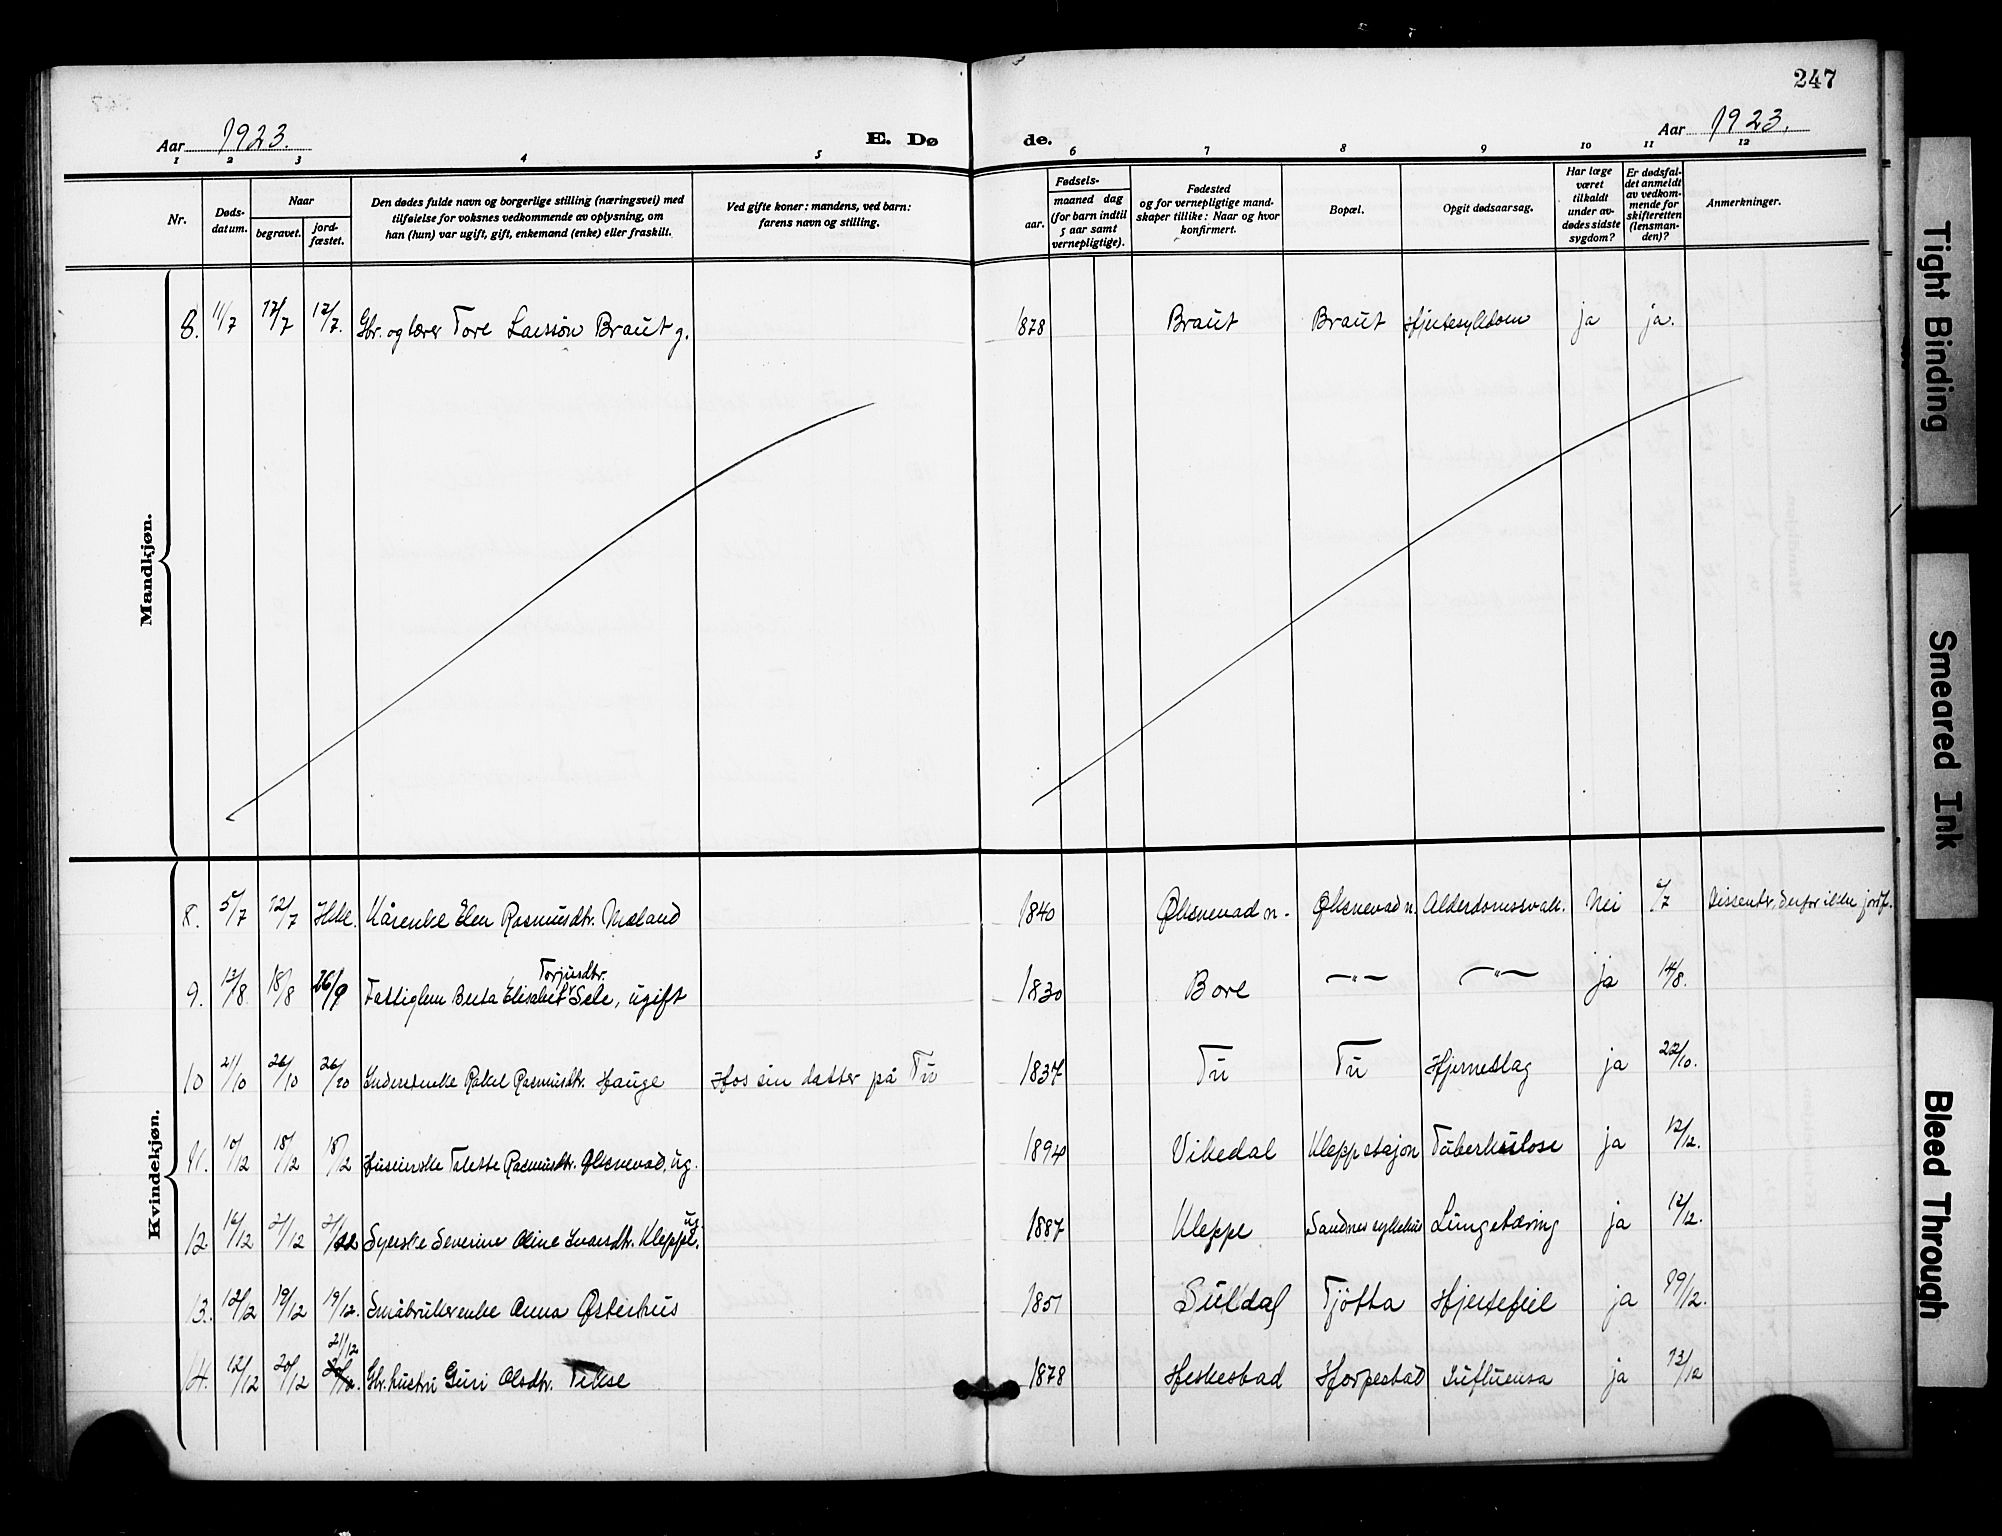 247
Aar 1923.
E. Dø
de.
Aar 1923.
1 2 3 4 5 6 7 8 9 10 11 12
Nr.
Døds-
datum.
Naar
begravet.
jord-
fæstet.
Den dødes fulde navn og borgerlige stilling (næringsvei) med
tilføielse for voksnes vedkommende av oplysning, om
han (hun) var ugift, gift, enkemand (enke) eller fraskilt.
Ved gifte koner: mandens, ved barn:
farens navn og stilling.
Fødsels-
aar.
maaned dag
(for barn indtil
5 aar samt
vernepligtige).
Fødested
og for vernepligtige mand-
skaper tillike: Naar og hvor
konfirmert.
Bopæl.
Opgit dødsaarsag.
Har læge
været
tilkaldt
under av-
dødes sidste
sygdom?
Er dødsfal-
det anmeldt
av vedkom-
mende for
skifteretten
(lensman-
den)?
Anmerkninger.
Mandkjøn.
8. 11/7 17/7 17/7. Gbr. og lærer Tore Larsson Braut g. 1878 Braut Braut Hjertesykdom ja ja.
Kvindekjøn.
8. 5/7 12/7 Ikke. Kårenke Elen Rasmusdtr. Mæland 1840 Øksnevad n. Øksnevad n. Alderdomssvakh. Nei 6/7 Dissenter, derfor ikke jordf.
Torjusdtr.
9. 13/8 18/8 26/9 Fattiglem Berta Elisabet Sele, ugift 1830 Bore —"— —"— ja 14/8.
10 21/10 26/10 26/10 Inderstenke Rakel Rasmusdtr. Hauge Hos sin datter på Tu 1837 Tu Tu Hjerneslag ja 22/10.
11. 10/12 18/12 18/12 Husjenske Talette Rasmusdtr. Øksnevad, ug. 1894 Vikedal Klepp stasjon Tuberkulose ja 12/12.
ug.
12 /12 /12 /12 Syerske Severine Oline Ivarsdtr. Kleppe. 1887 Kleppe Sandnes sykehus Lungetæring ja 12/12.
13. 12/12 19/12 19/12. Småbrukerenke Anna Østerhus 1851 Suldal Tjøtta Hjertefeil ja 19/12.
21/12
14. 12/12 20/12 Gbr. hustru Guri Olsdtr. Tikse 1878 Heskestad Horpestad Influensa ja 13/12
Tight Binding
Smeared Ink
Bleed Through